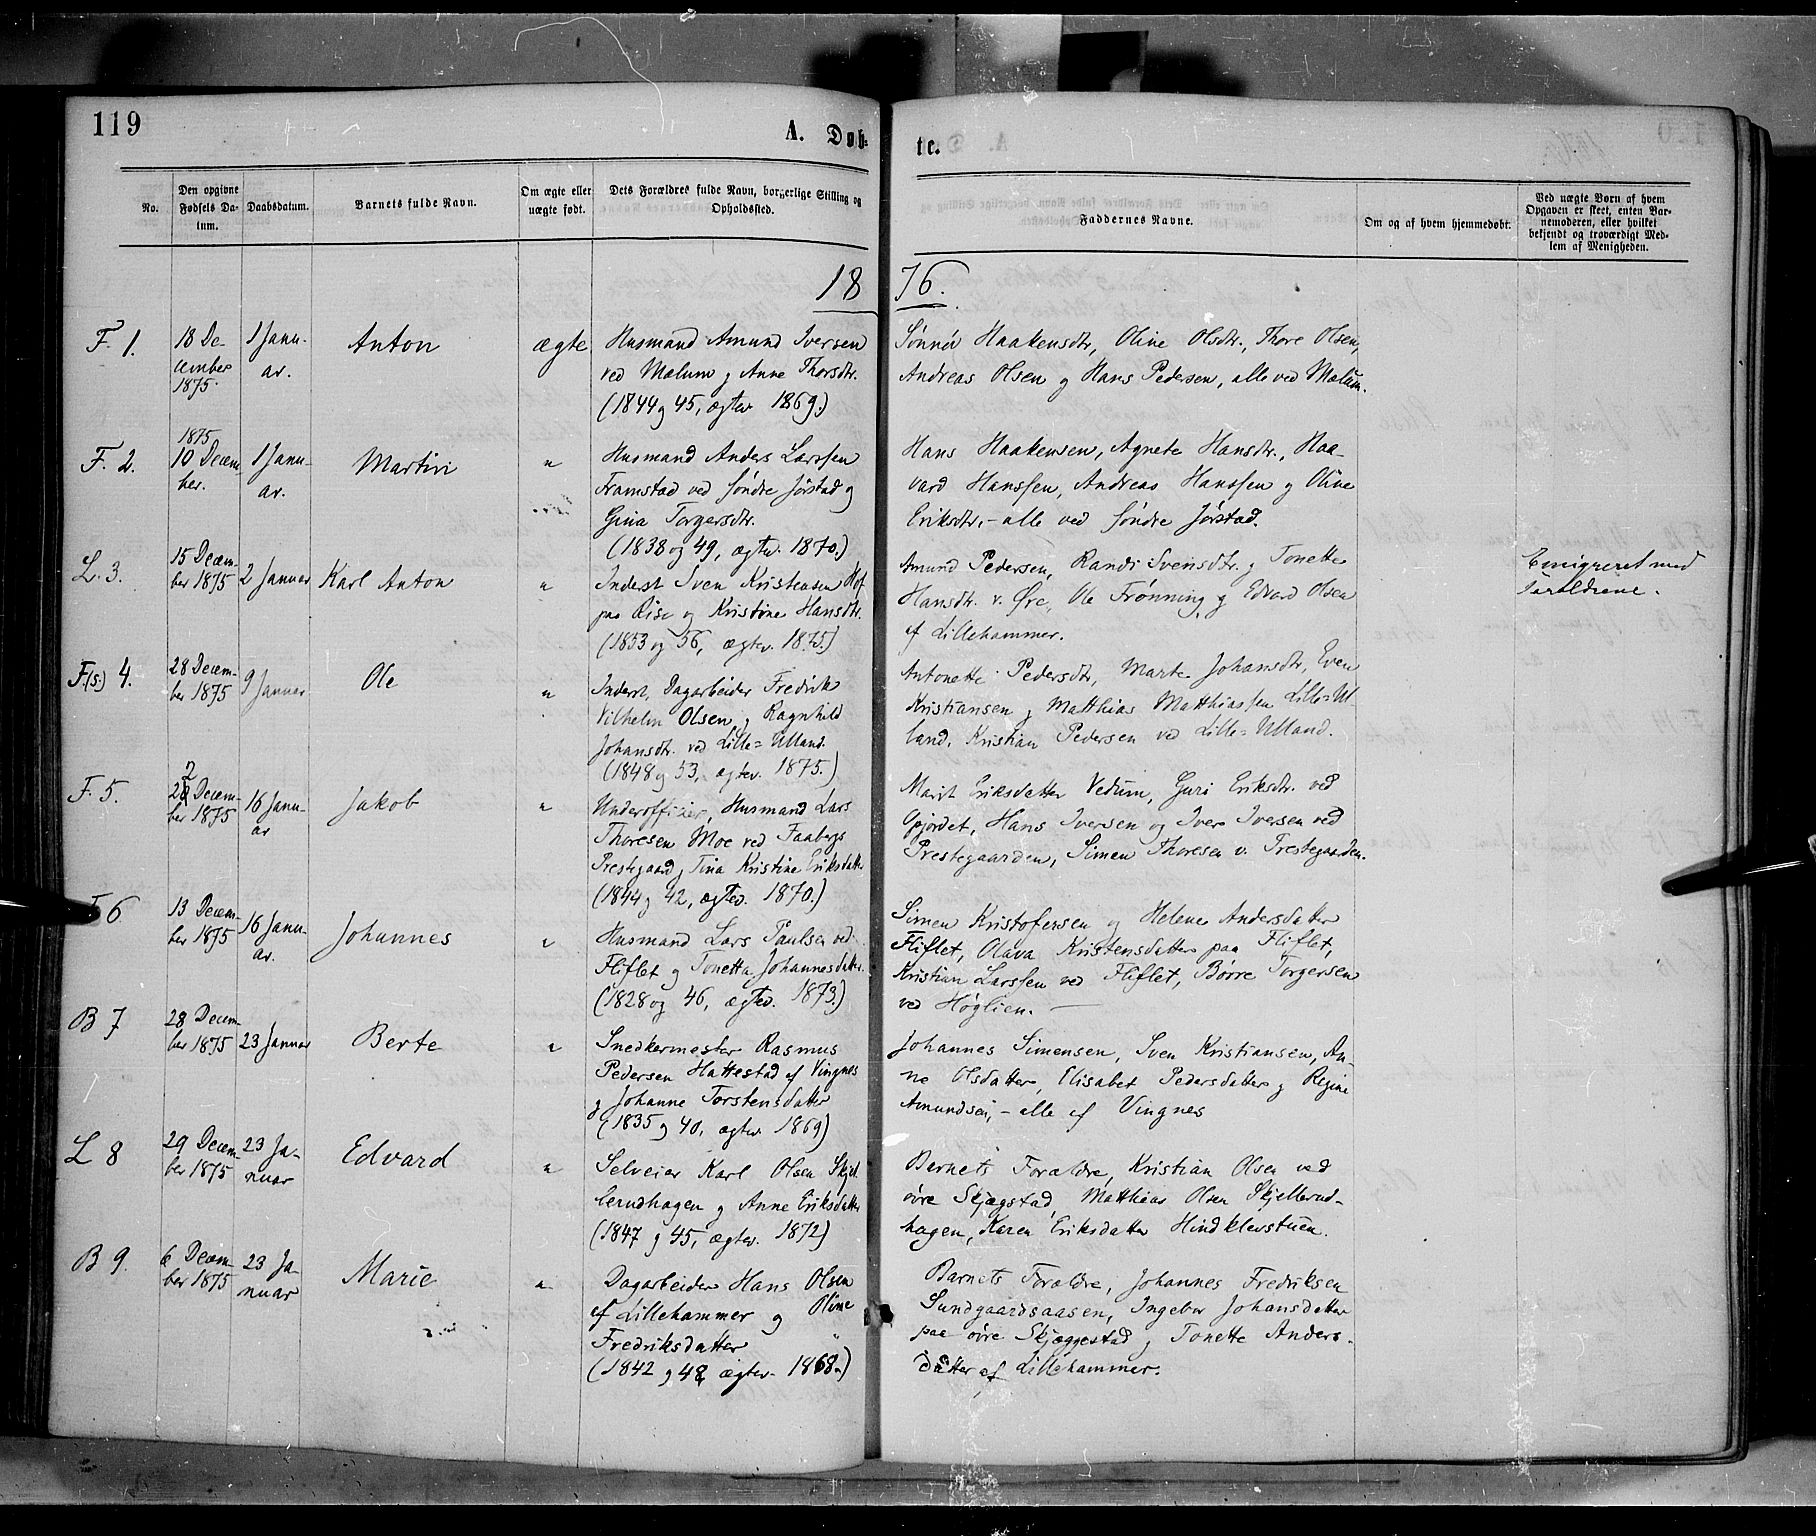 119
A. Døb-
te.
No.
Den opgivne
Fødsels Da-
tum.
Daabsdatum.
Barnets fulde Navn.
Om ægte eller
uægte født.
Dets Forældres fulde Navn, borgerlige Stilling og
Opholdssted.
Faddernes Navne.
Om og af hvem hjemmedøbt.
Ved uægte Børn af hvem
Opgaven er skeet, enten Bar-
nemoderen, eller hvilket
bekjendt og troværdigt Med-
lem af Menigheden.
18 76.
F. 1.
18 De-
cember
1875.
1 Janu-
ar.
Anton
ægte
Husmand Amund Iversen
ved Mælum g Anne Thorsdtr.
(1844 g 45, ægtev. 1869.)
Sønnøv Haakensdtr, Oline Olsdtr., Thore Olsen,
Andreas Olsen g Hans Pedersen, alle ved Mælum.
F. 2.
1875
10 Decem-
ber.
1 Janu-
ar.
Martin
"
Husmand Anders Larssen
Framstad ved søndre Jørstad g
Gina Torgersdtr.
(1838 og 49, ægtev. 1870.)
Hans Haakensen, Agnete Hansdtr., Haa-
vard Hanssen, Andreas Hanssen g Oline
Eriksdtr. - alle ved søndre Jørstad.
L. 3.
15 Decem-
ber 1875
2 Januar
Karl Anton
"
Inderst Sven Kristensen Hof
paa Rise og Kristine Hansdtr.
(1853 og 56, ægtev. 1875.)
Amund Pedersen, Randi Svensdtr. g Tonette
Hansdtr. v. Øre, Ole Frønning g Edvard Olsen
af Lillehammer.
Emigreret med
Forældrene.
F.(s.) 4.
28 Decem-
ber 1875
9 Januar
Ole
"
Inderst, Dagarbeider Fredrik
Vilhelm Olsen g Ragnhild
Johansdtr. ved Lille-Ulland.
(1848 g 53, ægtev. 1875.)
Antonette Pedersdtr, Marte Johansdtr, Even
Kristiansen g Matthias Matthiassen Lille-Ul
land, Kristian Pedersen ved Lille-Ulland.
F. 5.
22 Decem-
ber 1875
16 Janu-
ar
Jakob
"
Underofficier, Husmand Lars
Thoresen Moe ved Faabergs
Prestegaard g Tina Kristine Eriksdatter
(1844 g 42, ægtev. 1870.)
Marit Eriksdatter Vedum, Guri Eriksdtr. ved
Gjørdet, Hans Iversen og Iver Iversen ved
Prestegaarden, Simen Thoresen v. Prestegaarden.
F 6
13 Decem-
ber 1875
16 Janu-
ar.
Johannes
"
Husmand Lars Paulsen ved
Fliflet g Tonetta Johannesdatter
(1828 og 46, ægtev. 1873.)
Simen Kristofersen og Helene Andersdatter
Fliflet, Olava Kristensdatter paa Fliflet,
Kristian Larssen ved Fliflet, Børre Torgersen
ved Høglien. —
B 7
28 Decem-
ber 1875
23 Januar
Berte
"
Snedkermester Rasmus
Pedersen Hattestad af Vingnes
g Johanne Torstensdatter
(1835 g 40, ægtev 1869)
Johannes Simensen, Sven Kristiansen, An-
ne Olsdatter, Elisabet Pedersdatter g Regine
Amundsen, - alle af Vingnes
L 8
29 Decem-
ber 1875
23 Ja-
nuar
Edvard
"
Selveier Karl Olsen Skjel
lerudhagen g Anne Eriksdatter
(1847 g 45, ægtev. 1872)
Barnets Forældre, Kristian Olsen ved
øvre Skjægstad, Matthias Olsen Skjellerud-
hagen, Karen Eriksdatter Hindklevstuen.
B 9.
6 Decem-
ber 1875
23 Ja-
nuar
Marie
"
Dagarbeider Hans Olsen
af Lillehammer og Oline
Fredriksdatter
(1842 g 48, ægtev. 1868.)
Barnets Forældre, Johannes Fredriksen
Sundgaardsaasen, Ingebor Johansdatter
paa øvre Skjæggestad g Tonette Anders-
datter af Lillehammer.